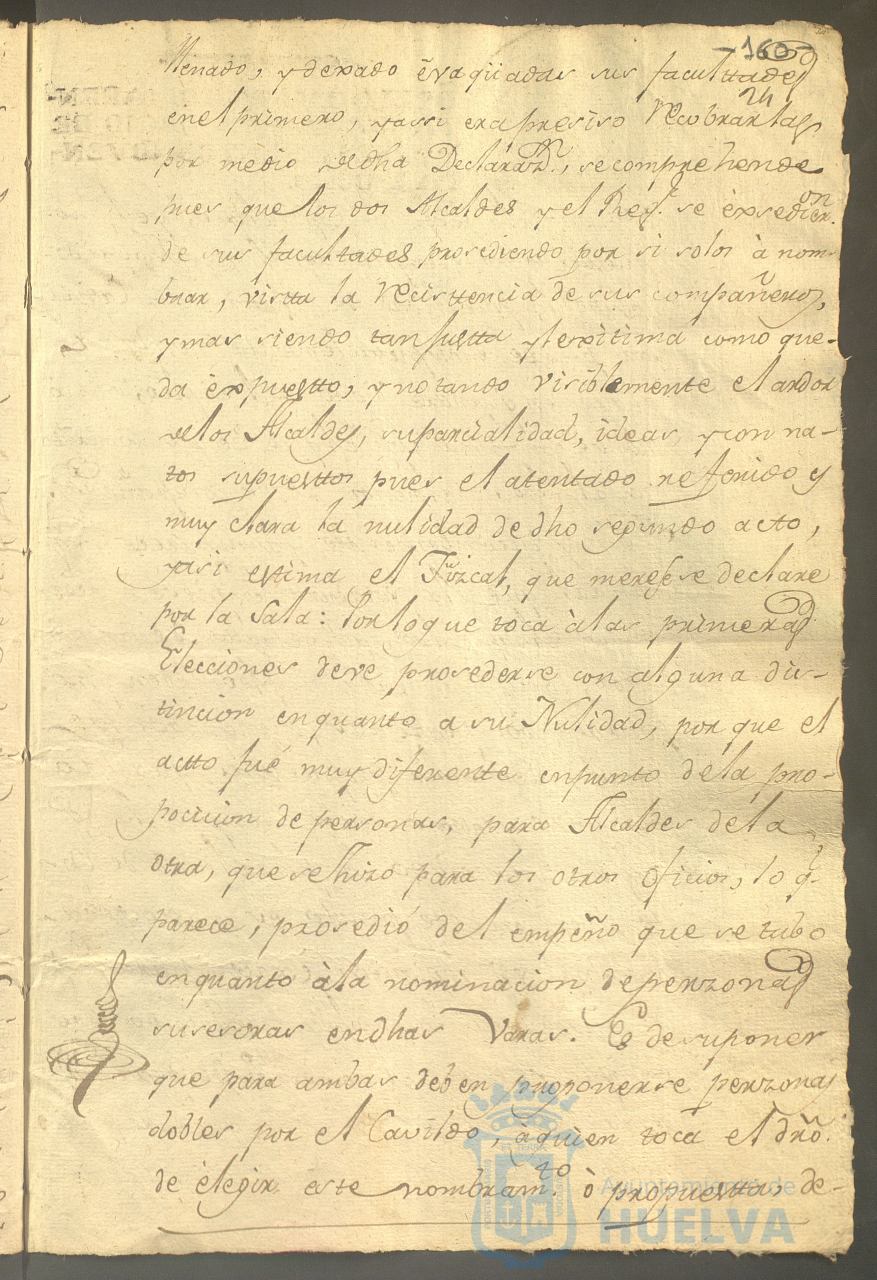 -160-
24
llenado, y dexado évaqüadas sus facultades
en el primero, y assi era presiso recobrarlas
por medio de dha Declaraz.n, se comprehende
pues que los dos Alcaldes y el Rex.r se éxsedieron
de sus facultades prosediendo por si solos à nom-
brar, vista la recisttencia de sus compañeros,
y mas siendo tan justta y lexitima como que-
da éxpuestto, y notando visiblemente el ardor
de los Alcaldes, su parcialidad, ideas, y con na-
tos supuesttos pues el atentado referido y
muy clara la nulidad de dho segundo acto,
y asi estima el Fiscal, que merese se declare
por la Sala: Por lo que toca à las primeras
Elecciones deve prosederse con alguna dis-
tincion en quanto a su Nulidad, por que el
actto fué muy diferentte en punto de la pro-
pocicion de personas, para Alcaldes de la
otra, que se hizo para los otros oficios, lo q.e
parece, prosedió del empeño que se tubo
en quanto à la nominacion de perzonas
susesoras en dhas Varas. Es de suponer
que para ambas deben proponerse perzonas
dobles por el Cavildo, à quien toca el dro.
de èlegir este nombram.to ò propuestta, de-
Ayuntamiento de
HUELVA